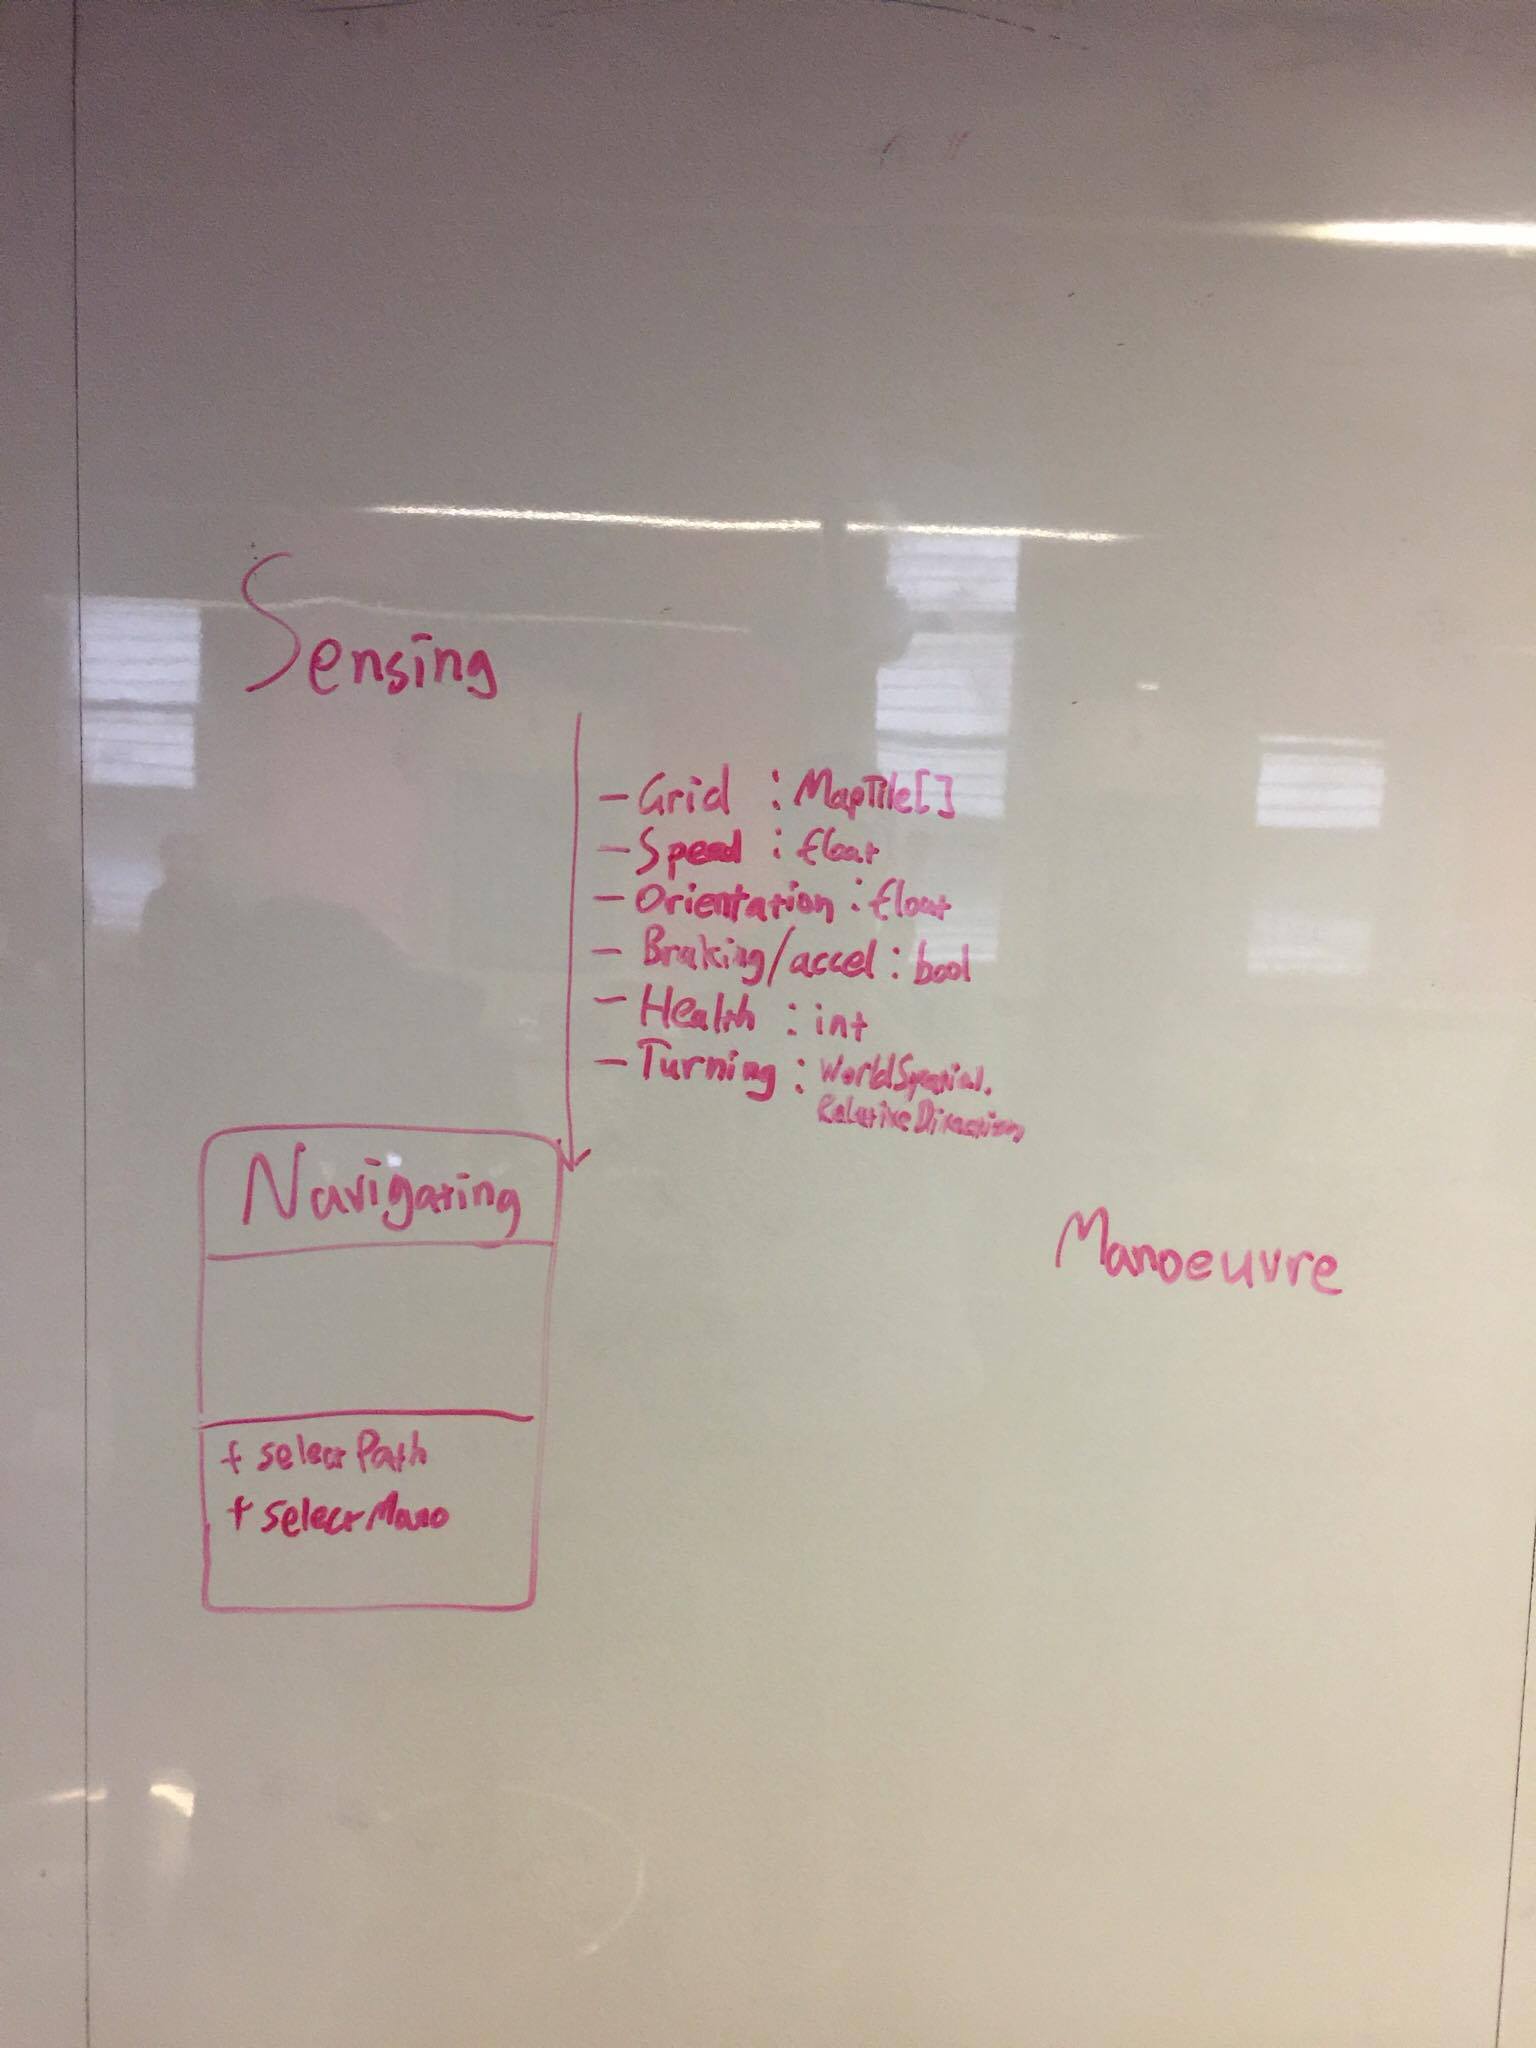 Sensing
- Grid : MapTile[]
- Speed : float
- Orientation : float
- Braking/accel : bool
- Health : int
- Turning : WorldSpatial.
RelativeDirection
Navigating
Manoeuvre
+ selectPath
+ selectMano